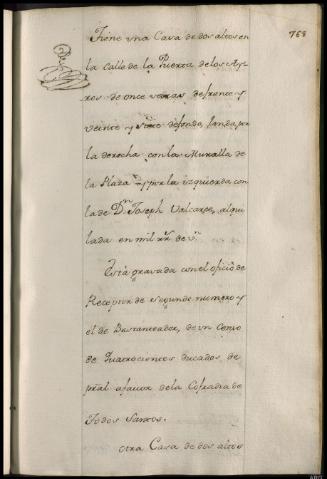 768
Tiene una Casa de dos altos en
la calle de la Puerta de los Ayres
de once varas de frente y
veinte y siete de fondo, linda por
la derecha con la Muralla de
la Plaza y por la izquierda con
la de Dn. Joseph Valcarze, alqui
lada en mil rs. de vn.
Está gravada con el oficio de
Receptor de segundo numero y
el de Bastanteador, de un Censo
de quatrocientos ducados de
pral. a favor de la Cofradia de
Todos Santos.
otra Casa de dos altos